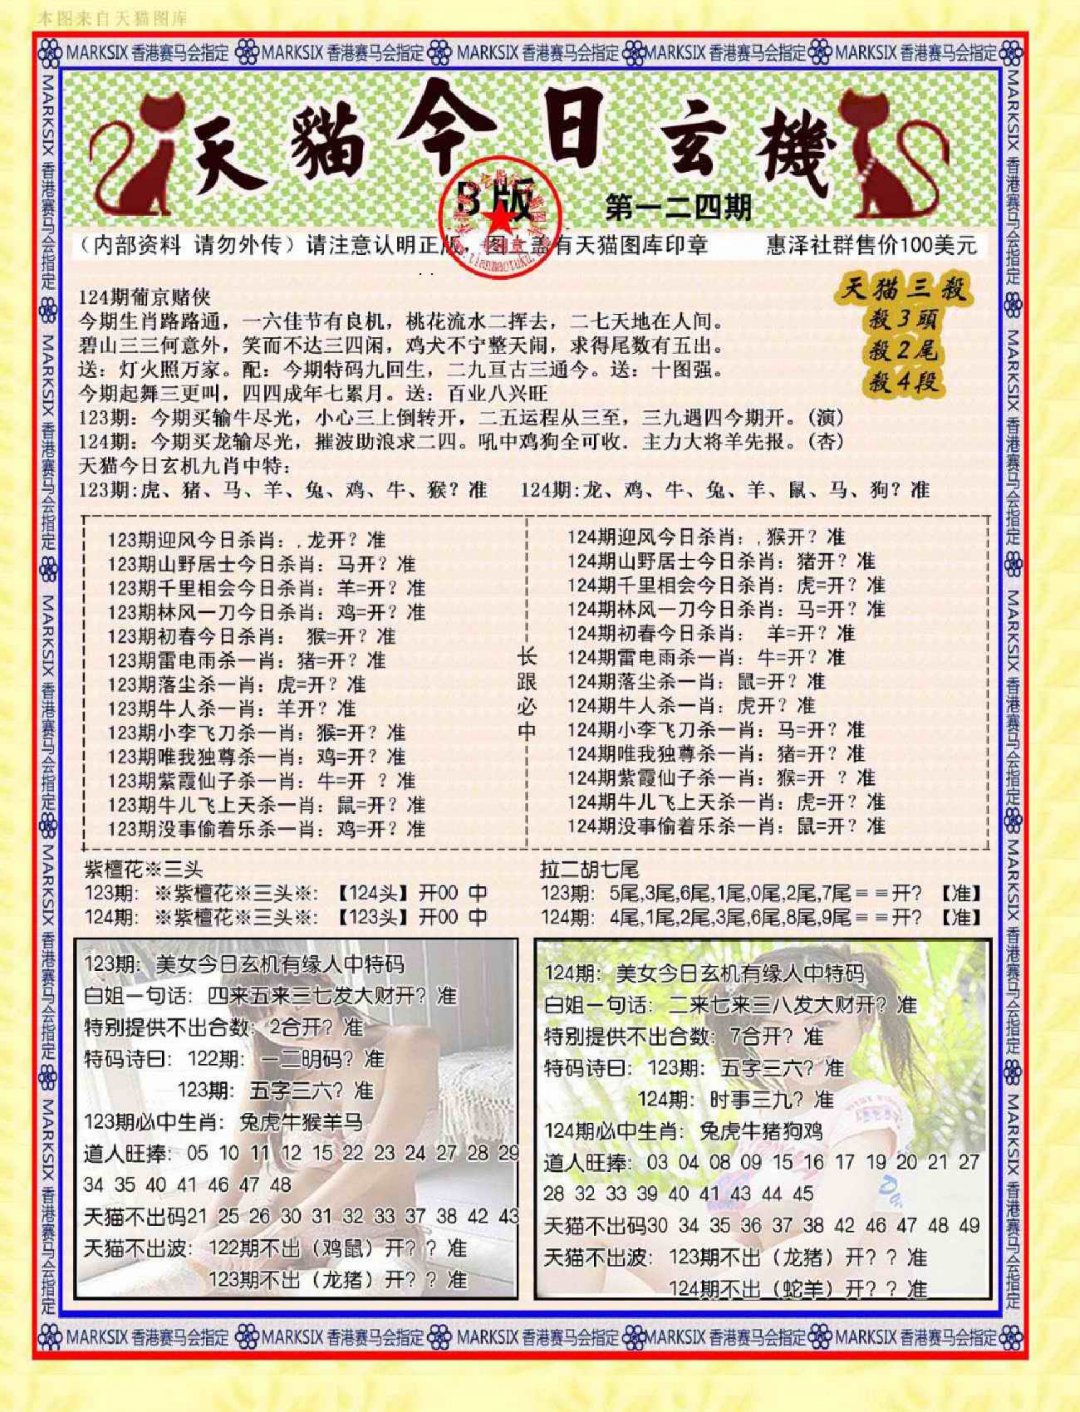 本图来自天猫图库
MARKSIX 香港赛马会指定 MARKSIX 香港赛马会指定 MARKSIX 香港赛马会指定 MARKSIX 香港赛马会指定 MARKSIX 香港赛马会指定
天貓今日玄機
B版
第一二四期
(内部资料 请勿外传)请注意认明正版，图上盖有天猫图库印章
惠泽社群售价100美元
天猫三殺
殺3頭
殺2尾
殺4段
124期葡京赌侠
今期生肖路路通，一六佳节有良机，桃花流水二挥去，二七天地在人间。
碧山三三何意外，笑而不达三四闲，鸡犬不宁整天闹，求得尾数有五出。
送：灯火照万家。配：今期特码九回生，二九亘古三通今。送：十图强。
今期起舞三更叫，四四成年七累月。送：百业八兴旺
123期：今期买输牛尽光，小心三上倒转开，二五运程从三至，三九遇四今期开。(演)
124期：今期买龙输尽光，摧波助浪求二四。吼中鸡狗全可收．主力大将羊先报。(杏)
天猫今日玄机九肖中特：
123期:虎、猪、马、羊、兔、鸡、牛、猴？准
124期:龙、鸡、牛、兔、羊、鼠、马、狗？准
123期迎风今日杀肖：.龙开？准
123期山野居士今日杀肖：马开？准
123期千里相会今日杀肖：羊=开？准
123期林风一刀今日杀肖：鸡=开？准
123期初春今日杀肖： 猴=开？准
123期雷电雨杀一肖：猪=开？准
123期落尘杀一肖：虎=开？准
123期牛人杀一肖：羊开？准
123期小李飞刀杀一肖：猴=开？准
123期唯我独尊杀一肖：鸡=开？准
123期紫霞仙子杀一肖：牛=开 ？准
123期牛儿飞上天杀一肖：鼠=开？准
123期没事偷着乐杀一肖：鸡=开？准
长跟必中
124期迎风今日杀肖：.猴开？准
124期山野居士今日杀肖：猪开？准
124期千里相会今日杀肖：虎=开？准
124期林风一刀今日杀肖：马=开？准
124期初春今日杀肖： 羊=开？准
124期雷电雨杀一肖：牛=开？准
124期落尘杀一肖：鼠=开？准
124期牛人杀一肖：虎开？准
124期小李飞刀杀一肖：马=开？准
124期唯我独尊杀一肖：猪=开？准
124期紫霞仙子杀一肖：猴=开 ？准
124期牛儿飞上天杀一肖：虎=开？准
124期没事偷着乐杀一肖：鼠=开？准
紫檀花※三头
123期：※紫檀花※三头※：【124头】开00 中
124期：※紫檀花※三头※：【123头】开00 中
拉二胡七尾
123期：5尾,3尾,6尾,1尾,0尾,2尾,7尾＝＝开？【准】
124期：4尾,1尾,2尾,3尾,6尾,8尾,9尾＝＝开？【准】
123期：美女今日玄机有缘人中特码
白姐一句话：四来五来三七发大财开？准
特别提供不出合数：2合开？准
特码诗曰：122期：一二明码？准
123期：五字三六？准
123期必中生肖：兔虎牛猴羊马
道人旺捧：05 10 11 12 15 22 23 24 27 28 29
34 35 40 41 46 47 48
天猫不出码21 25 26 30 31 32 33 37 38 42 43
天猫不出波：122期不出（鸡鼠）开？？准
123期不出（龙猪）开？？准
124期：美女今日玄机有缘人中特码
白姐一句话：二来七来三八发大财开？准
特别提供不出合数：7合开？准
特码诗曰：123期：五字三六？准
124期：时事三九？准
124期必中生肖：兔虎牛猪狗鸡
道人旺捧：03 04 08 09 15 16 17 19 20 21 27
28 32 33 39 40 41 43 44 45
天猫不出码30 34 35 36 37 38 42 46 47 48 49
天猫不出波：123期不出（龙猪）开？？准
124期不出（蛇羊）开？？准
MARKSIX 香港赛马会指定 MARKSIX 香港赛马会指定 MARKSIX 香港赛马会指定 MARKSIX 香港赛马会指定 MARKSIX 香港赛马会指定
MARKSIX 香港赛马会指定 MARKSIX 香港赛马会指定 MARKSIX 香港赛马会指定 MARKSIX 香港赛马会指定 MARKSIX 香港赛马会指定
MARKSIX 香港赛马会指定 MARKSIX 香港赛马会指定 MARKSIX 香港赛马会指定 MARKSIX 香港赛马会指定 MARKSIX 香港赛马会指定